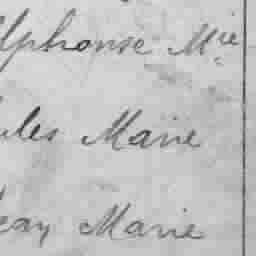 lphonse Mie
ules Marie
ean Marie